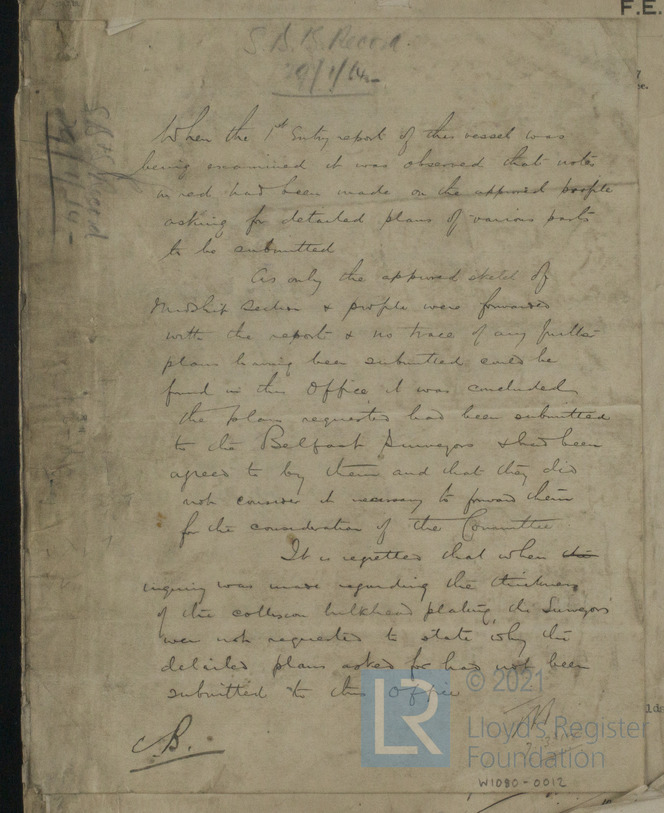 F.E.
S.B.B. Record.
9/1/14
S.B.B. Record
9/1/14
When the 1st Entry report of this vessel was
being examined it was observed that notes
in red had been made on the approved profile
asking for detailed plans of various parts
to be submitted
As only the approved sketch of
Midship Section & profile were forwarded
with the report & no trace of any further
plans having been submitted could be
found in this Office, it was concluded
the plans requested had been submitted
to the Belfast Surveyors & had been
agreed to by them and that they did
not consider it necessary to forward them
for the consideration of the Committee
It is regretted that when the
inquiry was made regarding the thickness
of the collision bulkhead plating, the Surveyors
were not requested to state why the
detailed plans asked for had not been
submitted to this Office
C.B.
LR
© 2021
Lloyd's Register
Foundation
W1080-0012